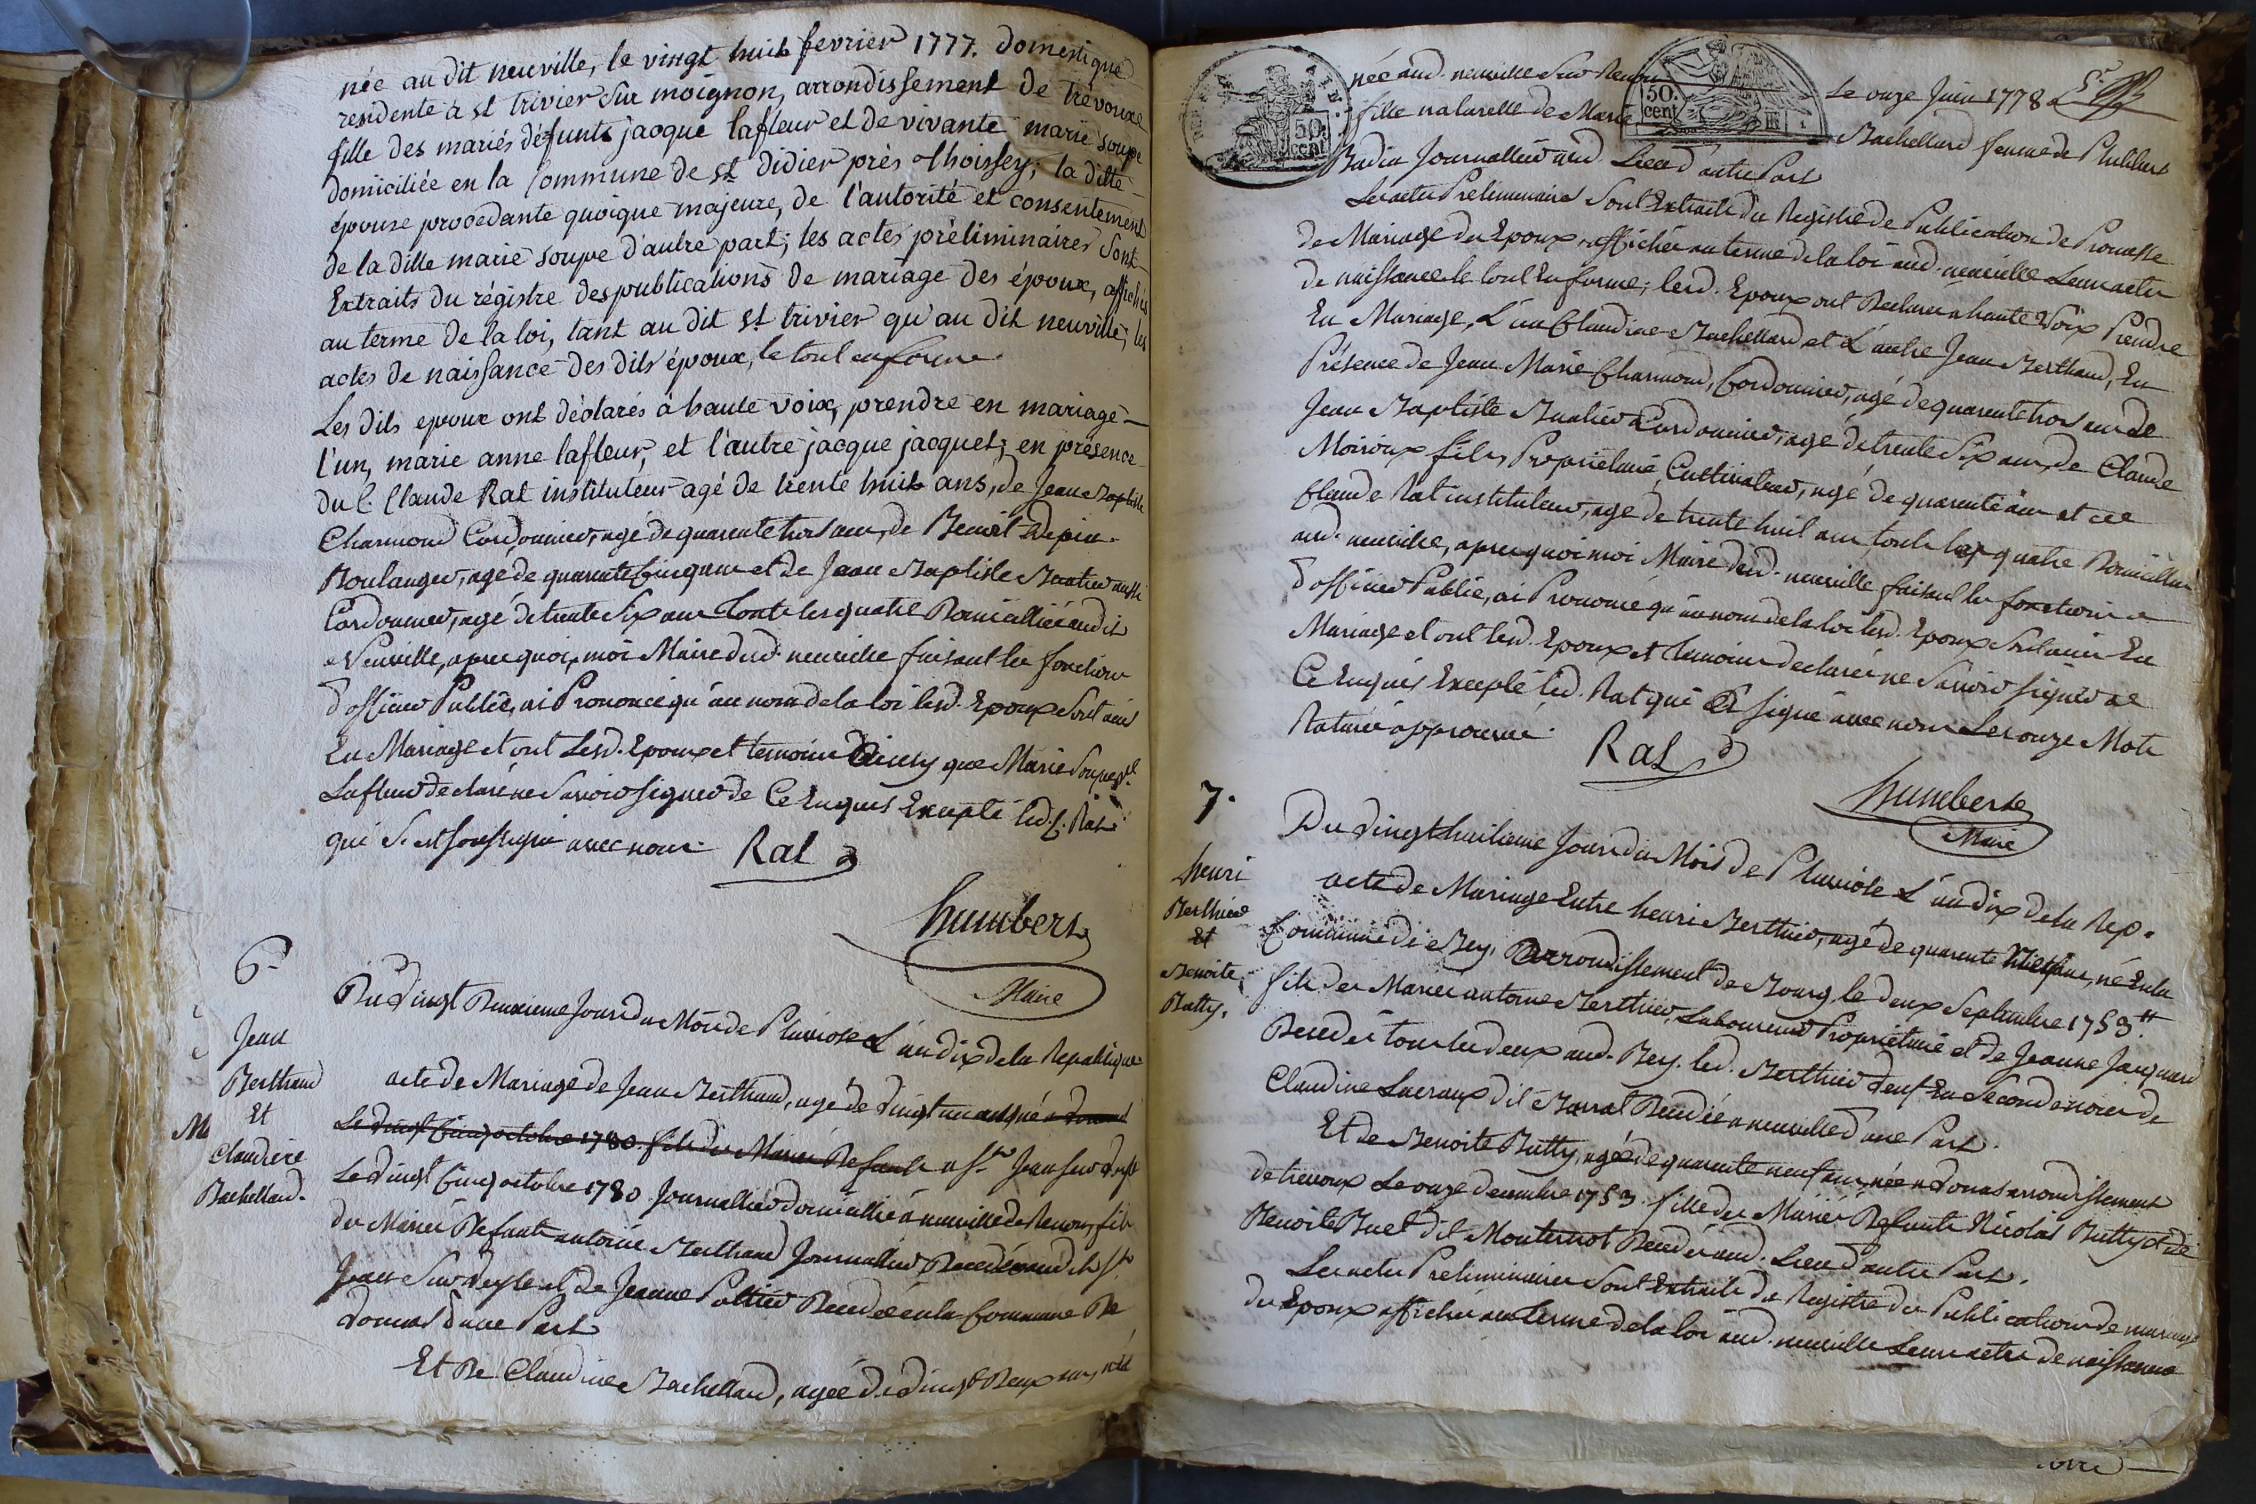 née au dit neuville, le vingt huit fevrier 1777. domestique
residente à st trivier sur moignon, arrondissement de trévoux
fille des mariés défunts jacque lafleur et de vivante marie soupe
domiciliée en la Commune de st didier près thoissey; la ditte
épouse procedante quoique majeure, de l'autorité et consentement
de la ditte marie soupe d'autre part; les actes préliminaires sont
Extraits du régistre des publications de mariage des époux, affichés
au terme de la loi, tant au dit st trivier qu'au dit neuville, les
actes de naissance des dits époux, le tout en forme.
Les dits epoux ont déclarés à haute voix, prendre en mariage
l'un, marie anne lafleur, et l'autre jacque jacquet; en présence
du C. Claude Rat instituteur agé de trente huit ans, de Jean Baptiste
Charmond Cordonnier, agé de quarente trois ans, de Benoit
Boulanger, agé de quarente Cinq ans et de Jean Baptiste Buatier aussi
Cordonnier, agé de trente Six ans tous les quatre Domicilliés audit
Neuville, apres quoi, moi Maire dud. neuville faisant les fonctions
d'officier Public, ai Prononcé qu'au nom de la loi lesd. Epoux Sont unis
En Mariage et ont Lesd. Epoux et temoins ainsy que Marie Soupe ve.
Lafleur declaré ne Savoir signer de Ce Enquis Excepté led. C. Rat
qui S'est soussigné avec nous. Rat
humbert
Maire
6
Jean
Berthaud
Et
Claudine
Bachellard.
Du Vingt Deuxieme Jour du Mois de Pluviose L'an dix de la Republique
acte de Mariage de Jean Berthaud, agé de vingt un ans, né
Le vingt Cinq octobre 1780. fils des Mariés Defunts a St. Jean sur Veyle
Le Vingt Cinq octobre 1780. Journallier domicillié a neuville les Renon, fils
des Mariés Defunts antoine Berthaud Journallier Decedé aud. St.
Jean Sur Veyle et de Jeanne Pottier Decedée en la Commune De
Vonnas d'une Part
Et De Claudine Bachellard, agée de vingt Deux ans, née
née aud. neuville Sur Renon
Le onze Juin 1778
50.
cent
50.
cent
fille naturelle de Marie Bachellard femme de Philibert
Badin Journallier aud. Lieu d'autre Part
Les actes Preliminaires Sont Extraits du Registre de Publication de Promesse
de Mariage des Epoux, affichés au terme de la loi aud. neuville Leurs actes
de naissance le tout En forme; lesd. Epoux ont Declaré a haute Voix Prendre
En Mariage, L'un Claudine Bachellard et L'autre Jean Berthaud, En
Présence de Jean Marie Charmond, Cordonnier, agé de quarente trois ans de
Jean Baptiste Buatier Cordonnier, agé de trente Six ans, de Claude
Moiroux fils, Proprietaire Cultivateur, agé de quarente ans et de
Claude Rat instituteur, agé de trente huit ans, touts les quatre Domicilliés
aud. neuville, apres quoi moi Maire dud. neuville faisant les fonctions
d'officier Public, ai Prononcé qu'au nom de la loi lesd. Epoux Sont unis En
Mariage et ont lesd. Epoux et temoins declarés ne Savoir signer de
Ce Enquis Excepté led. Rat qui a signé avec nous Les onze Mots
Raturé approuvé.
Rat
humbert
Maire
7.
henri
Berthier
Et
Benoite
Butty.
Du Vingt huitieme Jour du Mois de Pluviose L'an dix de la Rep.
acte de Mariage Entre henri Berthier, agé de quarente huit ans, né En la
Commune de Bey, arrondissement de Bourg le deux Septembre 1753
fils des Mariés antoine Berthier, Laboureur Proprietaire et de Jeanne Jacquard
Decedés tous les deux aud. Bey. led. Berthier Veuf En Seconde noces de
Claudine Lacroux dit Marral Decedée a neuville d'une Part.
Et de Benoite Butty, agée de quarente neuf ans, née a Vonnas arrondissement
de trevoux Le onze decembre 1753. fille des Mariés Defunts Nicolas Butty et de
Benoite Buet dit Monternot Decedés aud. Lieu d'autre Part.
Les actes Preliminaires Sont Extraits du Registre des Publications de mariage
des Epoux affichés au terme de la loi aud. neuville Leurs actes de naissance